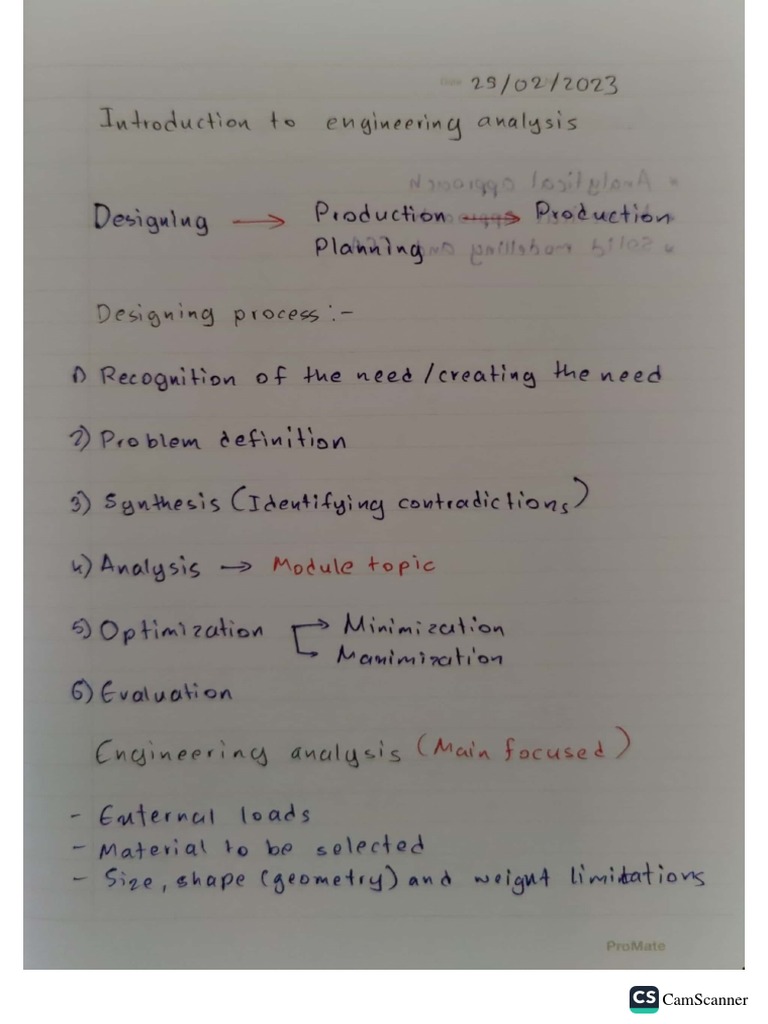 29/02/2023
Introduction to engineering analysis
Designing → Production → Production
Planning
Designing process:-
1) Recognition of the need/creating the need
2) Problem definition
3) Synthesis (Identifying contradictions)
4) Analysis → Module topic
5) Optimization → Minimization
→ Maximization
6) Evaluation
Engineering analysis (Main focused)
- External loads
- Material to be selected
- Size, shape (geometry) and weight limitations
ProMate
CS CamScanner